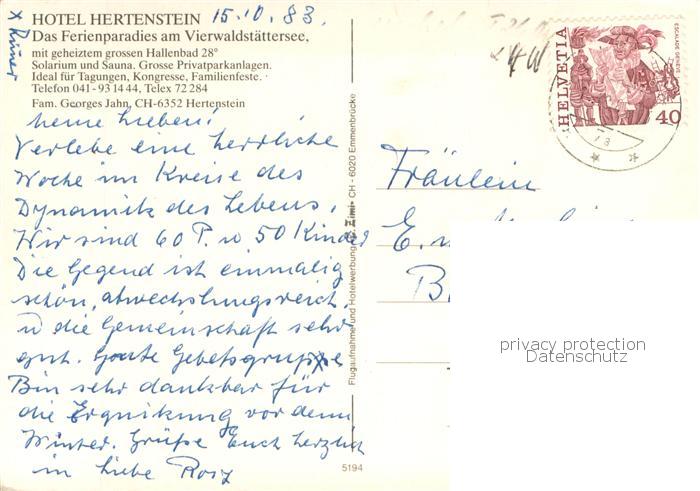 HOTEL HERTENSTEIN 15.10.83.
Das Ferienparadies am Vierwaldstättersee,
mit geheiztem grossen Hallenbad 28°
Solarium und Sauna. Grosse Privatparkanlagen.
Ideal für Tagungen, Kongresse, Familienfeste.
Telefon 041-93 14 44, Telex 72 284
Fam. Georges Jahn, CH-6352 Hertenstein
Meine Lieben!
Verlebe eine herrliche
Woche im Kreise des
Dynamik des Lebens.
Wir sind 60 P. u 50 Kinder
Die Gegend ist einmalig
schön, abwechslungsreich,
u die Gemeinschaft sehr
gut. Gebetsgruppe
Bin sehr dankbar für
die Erquikung vor dem
Winter. Grüsse Euch herzlich
in Liebe Rosy
Flugaufnahme und Hotelwerbung CH - 6020 Emmenbrücke
5194
HELVETIA
ESCALADE GENÈVE
40
Fräulein
E.
B
privacy protection
Datenschutz